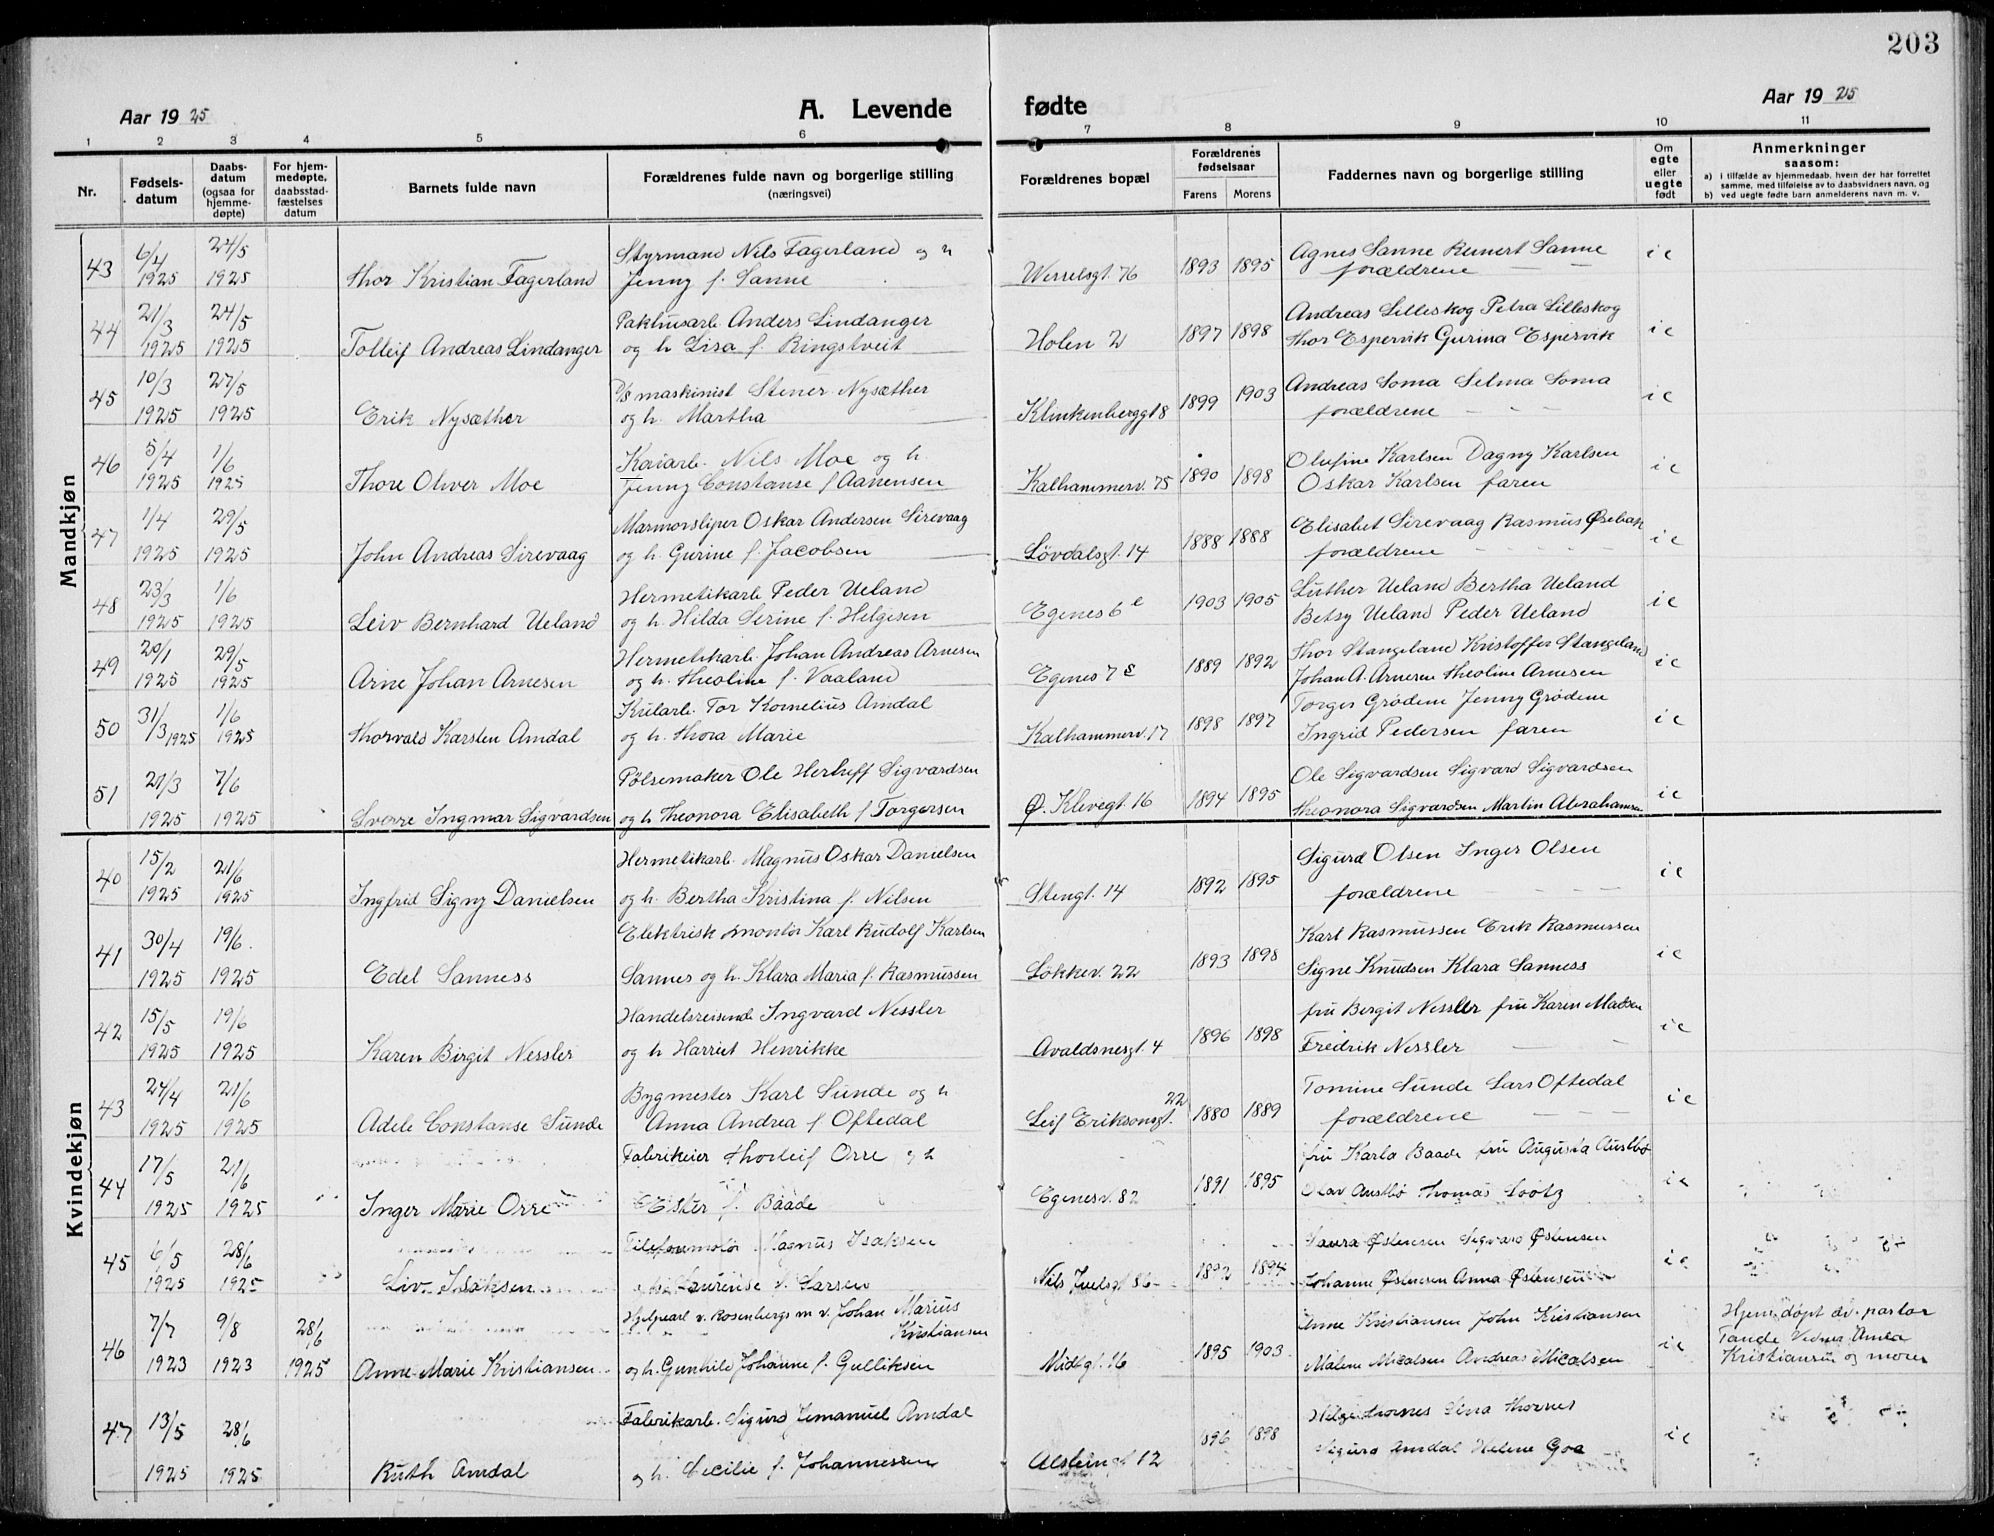 203
Aar 1925 A. Levende fødte Aar 1925
1 2 3 4 5 6 7 8 9 10 11
Nr. Fødsels-datum Daabs-datum (ogsaa for hjemme-døpte) For hjem-medøpte, daabsstad-fæstelses datum Barnets fulde navn Forældrenes fulde navn og borgerlige stilling (næringsvei) Forældrenes bopæl Forældrenes fødselsaar Farens Morens Faddernes navn og borgerlige stilling Om egte eller uegte født Anmerkninger saasom:
a) i tilfælde av hjemmedaab, hvem der har forrettet samme, med tilføielse av to daabsvidners navn, og
b) ved uegte fødte barn anmelderens navn m. v.
Mandkjøn
43 6/4 24/5 Styrmand Nils Fagerland og h Agnes Sanne Reinert Sanne i e
1925 1925 Thor Kristian Fagerland Jenny f. Sanne Werrelsgt. 76 1893 1895 forældrene
44 21/3 24/5 Pakhusarb Anders Lindanger Andreas Lilleskog Petra Lilleskog i e
1925 1925 Tolleif Andreas Lindanger og h Lisa f. Ringstveit Holen 2 1897 1898 Thor Espervik Gurina Espervik
45 10/3 27/5 D/S maskinist Stener Nysæther Andreas Soma Selma Soma i e
1925 1925 Erik Nysæther og h. Martha Klinkenberggt 8 1899 1903 forældrene
46 5/4 1/6 Kaiarb. Nils Moe og h. Olufine Karlsen Dagny Karlsen i e
1925 1925 Thore Oliver Moe Jenny Constanse f Aanensen Kalhammerv. 75 1890 1898 Oskar Karlsen faren
47 1/4 29/5 Marmorsliper Oskar Andersen Sirevaag Elisabet Sirevaag Rasmus i e
1925 1925 John Andreas Sirevaag og h. Gurine f. Jacobsen Løvdalsgt. 14 1888 1888 forældrene
48 23/3 1/6 Hermetikarb Peder Ueland Luther Ueland Bertha Ueland i e
1925 1925 Leiv Bernhard Ueland og h. Hilda Serine f. Helgesen Egenes 6 e 1903 1905 Betsy Ueland Peder Ueland
49 20/1 29/5 Hermetikarb. Johan Andreas Arnesen Thor Stangeland Kristoffer Stangeland i e
1925 1925 Arne Johan Arnesen og h. Theoline f. Vaaland Egenes 7 e 1889 1892 Johan A. Arnesen Theoline Arnesen
50 31/3 1/6 Kularb. Tor Kornelius Amdal Torger Grødem Jenny Grødem i e
1925 1925 Thorvald Karsten Amdal og h. Thora Marie Kalhammerv. 17 1898 1897 Ingrid Pedersen faren
51 27/3 7/6 Pølsemaker Ole Herluff Sigvardsen Ole Sigvardsen Sigvard Sigvardsen i e
1925 1925 Sverre Ingmar Sigvardsen og h Theonora Elisabeth f Torgersen Ø. Klevegt. 16 1894 1895 Theonora Sigvardsen Martin Abrahamsen
Kvindekjøn
40 15/2 21/6 Hermetikarb. Magnus Oskar Danielsen Sigurd Olsen Inger Olsen i e
1925 1925 Ingfrid Signy Danielsen og h. Bertha Kristina f. Nilsen Stengt. 14 1892 1895 forældrene
41 30/4 19/6 Elektrisk montör Karl Rudolf Karlsen Karl Rasmussen Erik Rasmussen i e
1925 1925 Edel Sanness Sannes og h. Klara Maria f. Rasmussen Løkkev. 22 1893 1898 Signe Knudsen Klara Sanness
42 15/5 19/6 Handelsreisende Ingvard Nessler fru Bergit Nessler fru Karen Madsen i e
1925 1925 Karen Birgit Nessler og h Harriet Henrikke Avaldsnesgt. 4 1896 1898 Fredrik Nessler
43 24/4 21/6 Bygmester Karl Sunde og h Tomine Sunde Lars Oftedal i e
1925 1925 Adele Constanse Sunde Anna Andrea f Oftedal Leif Eriksonsgt. 22 1880 1889 forældrene
44 17/5 21/6 Fabrikeier Thorleif Orre og h fru Karla Baade fru Augusta Austbø i e
1925 1925 Inger Marie Orre Ester f. Baade Egenesv. 82 1891 1895 Olav Austbø Thomas Lootz
45 6/5 28/6 Magnus Isaksen Laura Østensen Sigvard Østensen i e
1925 1925 Liv Isaksen Laurense f. Larsen Nils Juelsgt 86 1892 1894 Johanne Østensen Anna Østensen
46 7/7 9/8 28/6 Hjelpearl v. Rosenbergs m v. Johan Marius Kristiansen Anne Kristiansen John Kristiansen i e Hjemdøpt av pastor
1923 1923 1925 Anne Marie Kristiansen og h. Gunhild Johanne f. Gulliksen Midtgt. 16 1895 1903 Malene Micalsen Andreas Micalsen Tande
Kristiansen og moren
47 13/5 28/6 Fabrikarb. Sigurd Emanuel Amdal Helge Thornes Thornes i e
1925 1925 Ruth Amdal og h. Cecilie f. Johannessen 12 1896 1898 Sigurd Amdal Helene Goa